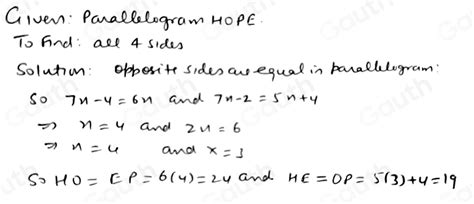 Given: Parallelogram HOPE.
To Find: all 4 sides
Solution: opposite sides are equal in parallelogram:
So 7n-4=6n and 7n-2=5n+4
⇒ n=4 and 2n=6
⇒ n=4 and x=3
So HO = EP = 6(4)=24 and HE=OP= 5(3)+4=19